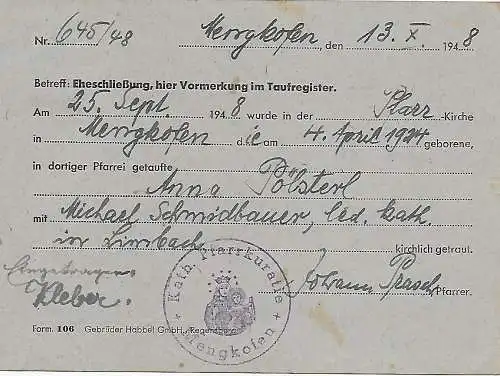 Nr. 645/48 Mengkofen, den 13. X. 1948
Betreff: Eheschließung, hier Vormerkung im Taufregister.
Am 25. Sept 1948 wurde in der Pfarr-Kirche
in Mengkofen die am 4. April 1924 geborene,
in dortiger Pfarrei getaufte
Anna Pölsterl
mit Michael Schmidbauer, led. kath.
in Limbach kirchlich getraut.
Eingetragen:
Kleber.
Johann Prasch, Pfarrer.
Kath. Pfarrkuratie
Mengkofen
Form. 106 Gebrüder Habbel GmbH., Regensburg